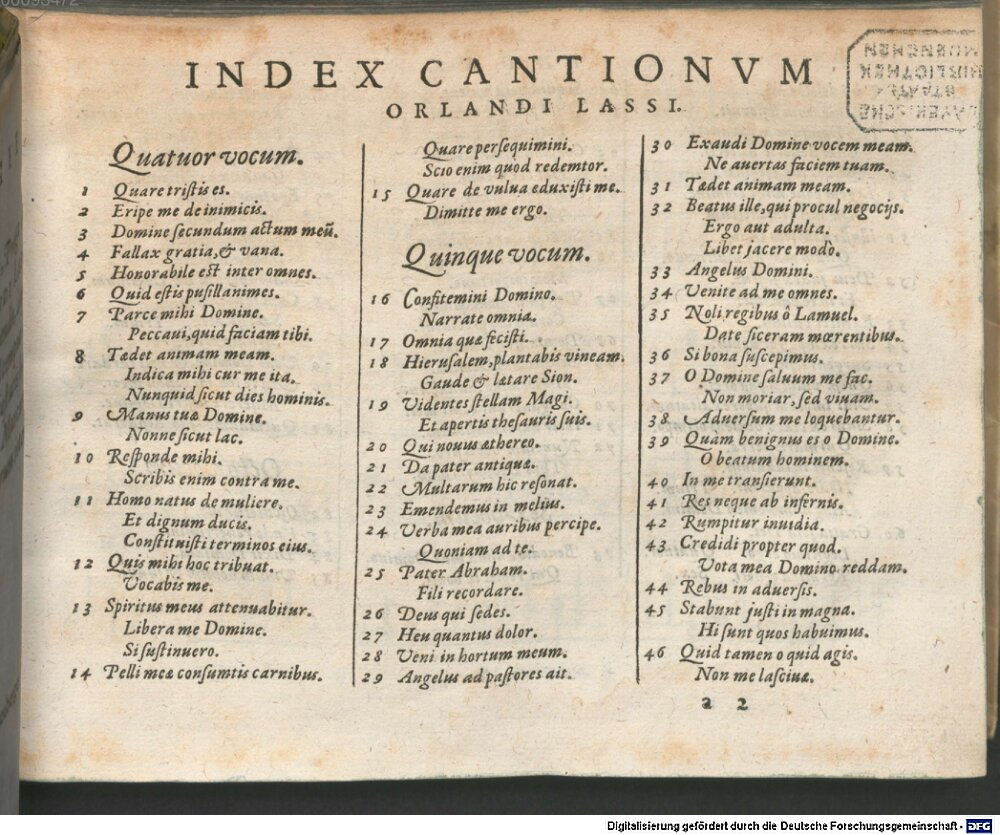 INDEX CANTIONVM
ORLANDI LASSI.
Quatuor vocum.
1 Quare tristis es.
2 Eripe me de inimicis.
3 Domine secundum actum meũ.
4 Fallax gratia, & vana.
5 Honorabile est inter omnes.
6 Quid estis pusillanimes.
7 Parce mihi Domine.
Peccaui, quid faciam tibi.
8 Tædet animam meam.
Indica mihi cur me ita.
Nunquid sicut dies hominis.
9 Manus tuæ Domine.
Nonne sicut lac.
10 Responde mihi.
Scribis enim contra me.
11 Homo natus de muliere.
Et dignum ducis.
Constituisti terminos eius.
12 Quis mihi hoc tribuat.
Vocabis me.
13 Spiritus meus attenuabitur.
Libera me Domine.
Si sustinuero.
14 Pelli meæ consumtis carnibus.
Quare persequimini.
Scio enim quod redemtor.
15 Quare de vulua eduxisti me.
Dimitte me ergo.
Quinque vocum.
16 Confitemini Domino.
Narrate omnia.
17 Omnia quæ fecisti.
18 Hierusalem, plantabis vineam.
Gaude & lætare Sion.
19 Videntes stellam Magi.
Et apertis thesauris suis.
20 Qui nouus æthereo.
21 Da pater antiquæ.
22 Multarum hic resonat.
23 Emendemus in melius.
24 Verba mea auribus percipe.
Quoniam ad te.
25 Pater Abraham.
Fili recordare.
26 Deus qui sedes.
27 Heu quantus dolor.
28 Veni in hortum meum.
29 Angelus ad pastores ait.
30 Exaudi Domine vocem meam.
Ne auertas faciem tuam.
31 Tædet animam meam.
32 Beatus ille, qui procul negocijs.
Ergo aut adulta.
Libet jacere modò.
33 Angelus Domini.
34 Venite ad me omnes.
35 Noli, regibus ô Lamuel.
Date siceram mœrentibus.
36 Si bona suscepimus.
37 O Domine saluum me fac.
Non moriar, sed viuam.
38 Aduersum me loquebantur.
39 Quàm benignus es o Domine.
O beatum hominem.
40 In me transierunt.
41 Res neque ab infernis.
42 Rumpitur inuidia.
43 Credidi propter quod.
Vota mea Domino reddam.
44 Rebus in aduersis.
45 Stabunt justi in magna.
Hi sunt quos habuimus.
46 Quid tamen o quid agis.
Non me lasciuæ.
a 2
Digitalisierung gefördert durch die Deutsche Forschungsgemeinschaft - DFG